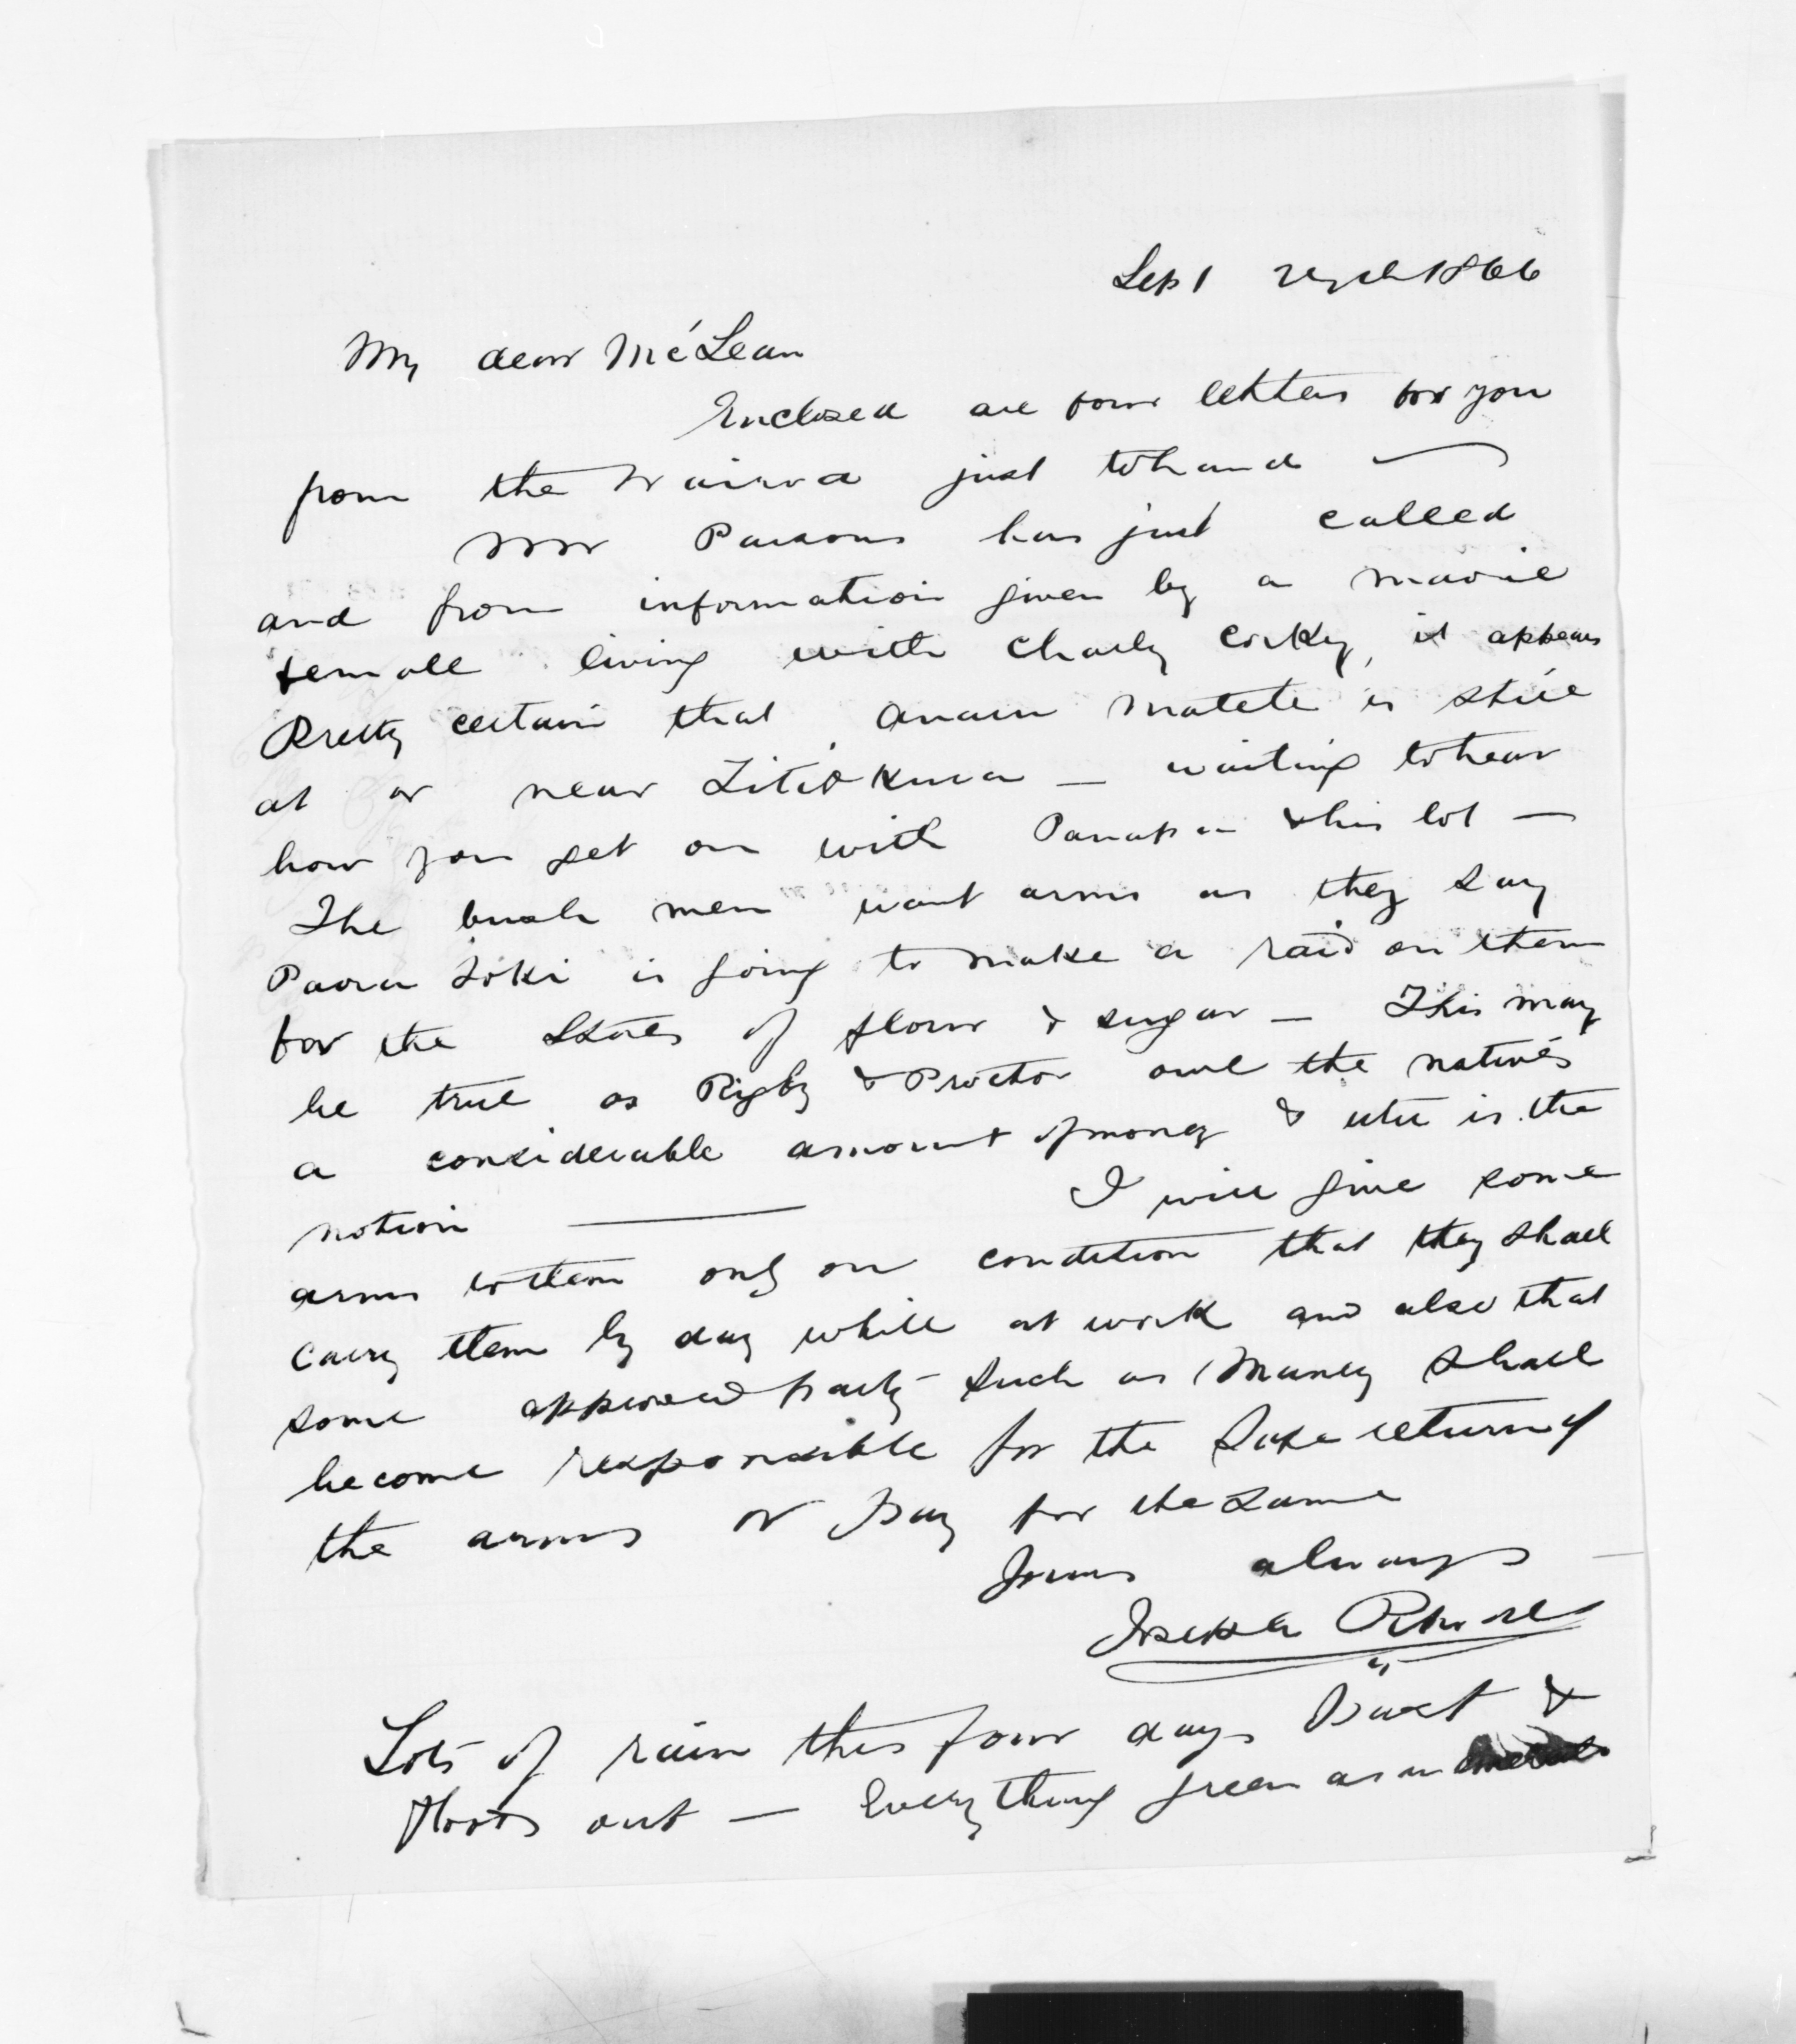 Sept 1866
My dear McLean
Enclosed are four letters for you
from the Wairoa just to hand
Mr Parsons has just called
and from information given by a maorie
female living with Charly Corky, it appears
Pretty certain that Anaru Matete is still
at or near Titiokura — waiting to hear
how you get on with Panapa & his lot —
The bush men want arms as they say
Paora Toki is going to make a raid on them
for the Stores of flour & sugar — This may
be true as Rigby & Proctor owe the natives
a considerable amount of money & utu is the
notion — I will give some
arms to them only on condition that they shall
carry them by day while at work and also that
some approved party such as Maney shall
become responsible for the safe return of
the arms or Pay for the same
Yours always
Joseph Rhodes
Lots of rain this four days Past &
floods out — Everything green as an